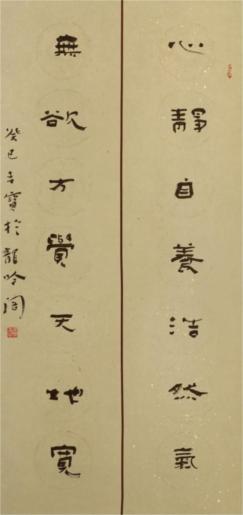 心靜自養浩然氣
無欲方覺天地寬
癸巳吉寶於龍吟閣